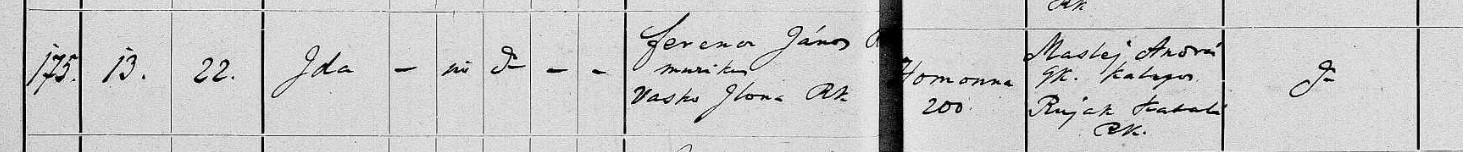 RK
175. 13. 22. Ida – nő d – –
Ferencz János R
munkás
Vasko Ilona RK
Homonna
200
Maslej András
gk. kalapos
Rujak Katalin
RK.
d